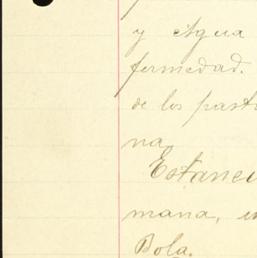 y Agua
fermedad.
de los past
na
Estanci
mana,
Bola.